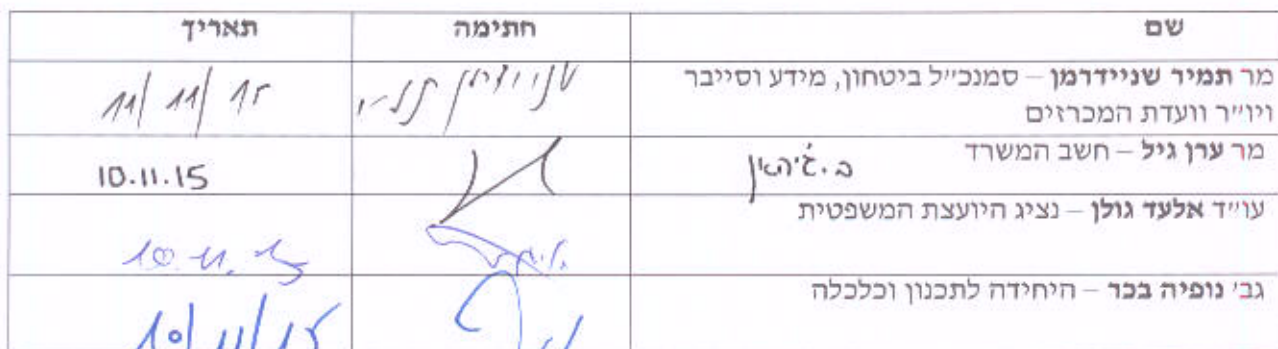 שם חתימה תאריך
מר תמיר שניידרמן – סמנכ"ל ביטחון, מידע וסייבר 11/11/15
ויו"ר וועדת המכרזים
מר ערן גיל – חשב המשרד 10.11.15
עו"ד אלעד גולן – נציג היועצת המשפטית 10.11.15
גב' נופיה בכר – היחידה לתכנון וכלכלה 10/11/15